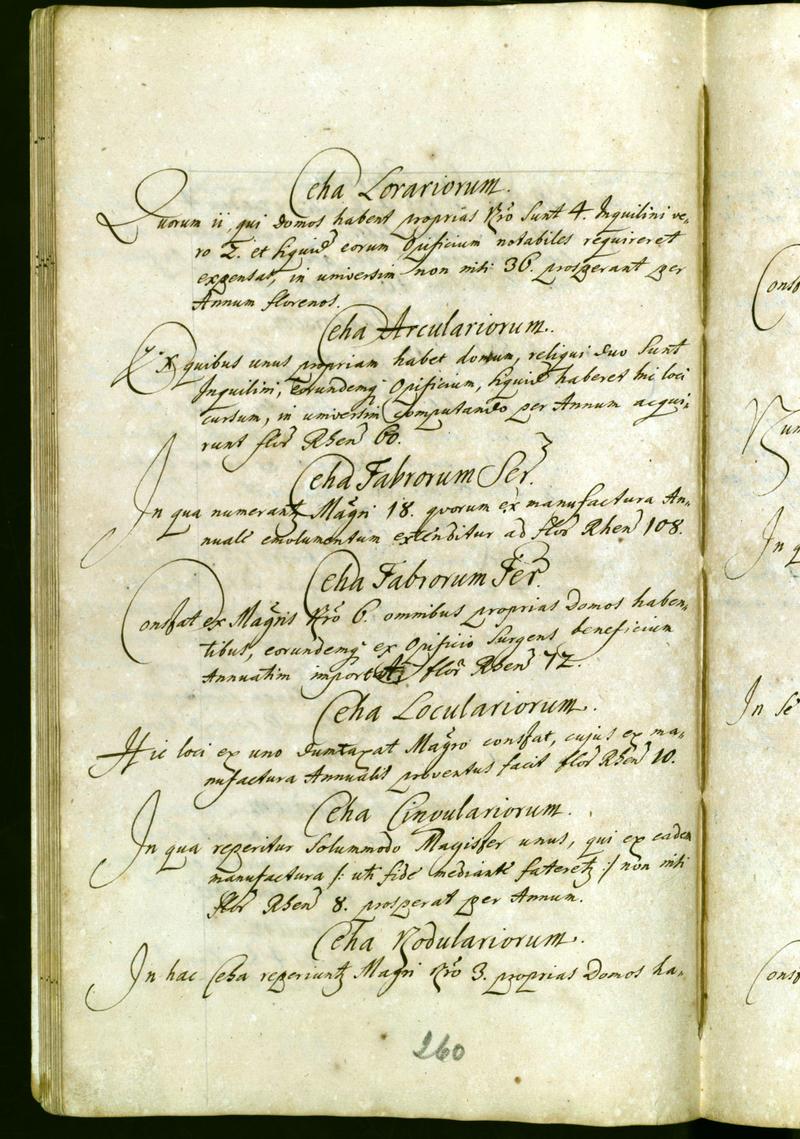 Ceha Lorariorum.
Quorum ii, qui Domos habent proprias Nro Sunt 4. Inquilini ve-
ro 2. et liquid eorum Opificium notabiles requireret
expensas, in universim non nisi 36. prosperant per
Annum florenos.
Ceha Arculariorum.
Ex quibus unus propriam habet domum, reliqui duo Sunt
Inquilini, eorundemq Opificium, liquid haberet hic loci
cursum, in universim computando per Annum acqui-
runt flor Rhen 60.
Ceha Fabrorum Ser.
In qua numerantz Magri 18. qvorum ex manufactura An-
nuale emolumentum extenditur ad flor Rhen 108.
Ceha Fabrorum Fer.
Constat ex Magris Nro 6. omnibus proprias Domos haben-
tibus, eorundemq ex Opificio Surgens beneficium
Annuatim importat flor Rhen 72.
Ceha Loculariorum.
Hic loci ex uno dumtaxat Magro constat, cujus ex ma-
nufactura Annualis proventus facit flor Rhen 10.
Ceha Cingulariorum.
In qua reperitur Solummodo Magister unus, qui ex eadem
manufactura /: uti fide mediante fateretz :/ non nisi
flor Rhen 8. prosperat per Annum.
Ceha Nodulariorum.
In hac Ceha reperiuntz Magri Nro 3. proprias Domos ha-
260